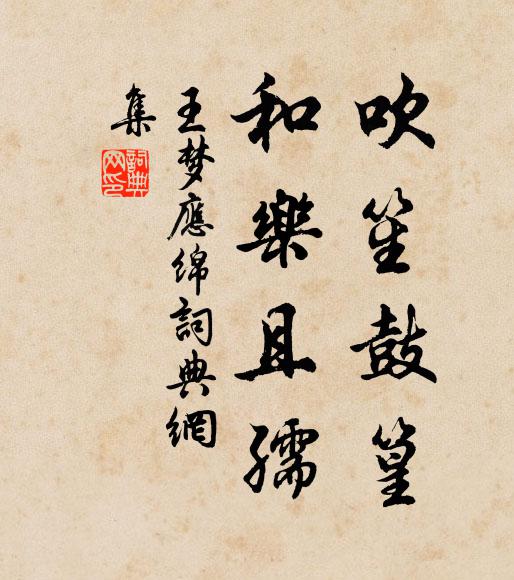 吹笙鼓篁
和樂且孺
王梦應綿詞典網
集
詞典
网印